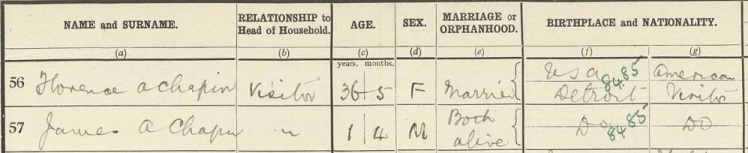 NAME and SURNAME. RELATIONSHIP to Head of Household. AGE. SEX. MARRIAGE or ORPHANHOOD. BIRTHPLACE and NATIONALITY.
(a) (b) (c) (d) (e) (f) (g)
years. months.
56 Florence A Chapin Visitor 36 5 F Married USA Detroit 8485 American Visitor
57 James A Chapin " 1 4 M Both alive Do 8485 Do